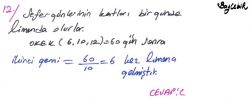 Beğendik
12/ Sefer günlerinin katları bir günde
limanda olurlar.
OKEK (6,10,12)=60 gün sonra
İkinci gemi = 60/10 = 6 kez limana
gelmiştir.
CEVAP: C